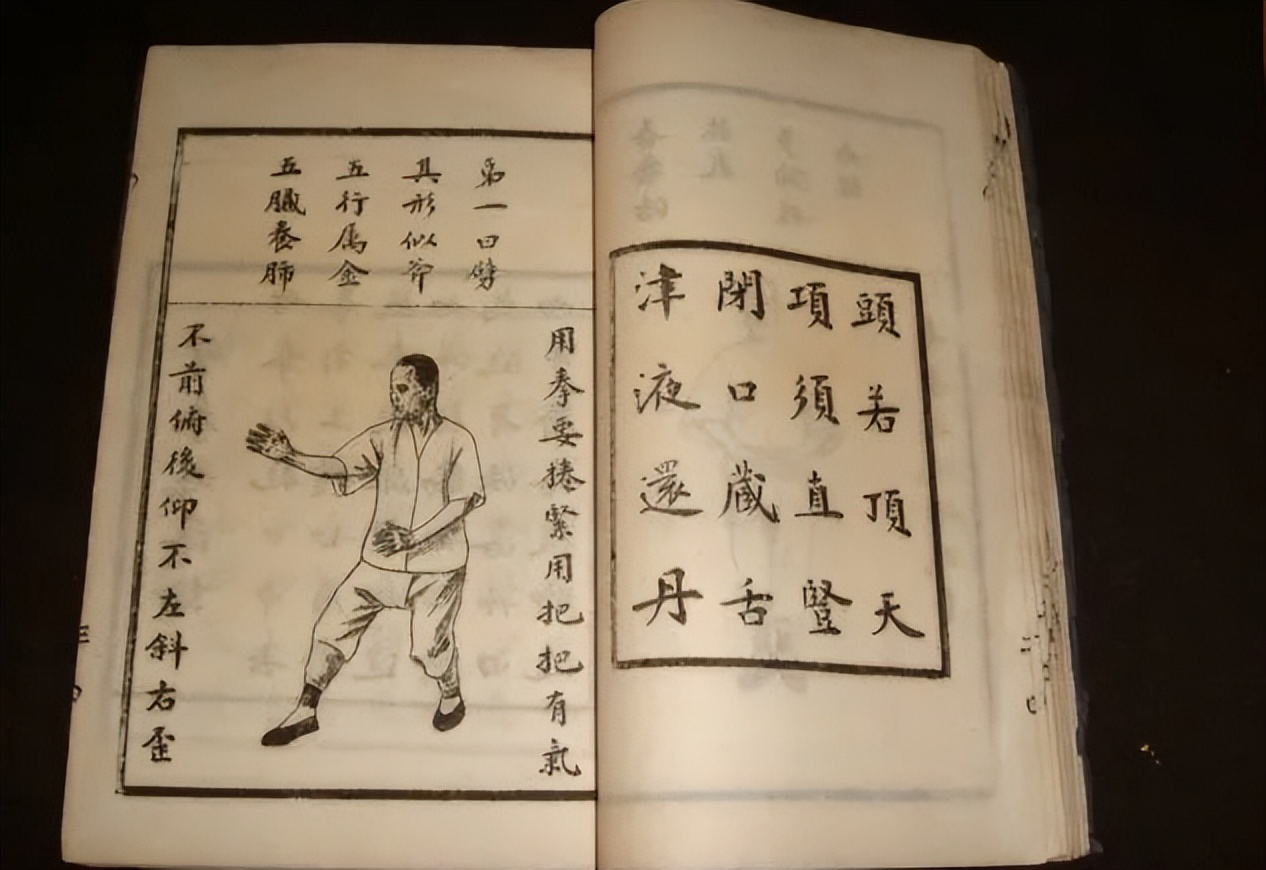 頭若頂天
項須直豎
閉口蔵舌
津液還丹
第一曰劈
其形似斧
五行属金
五臟養肺
用拳要捲緊用把把有氣
不前俯後仰不左斜右歪